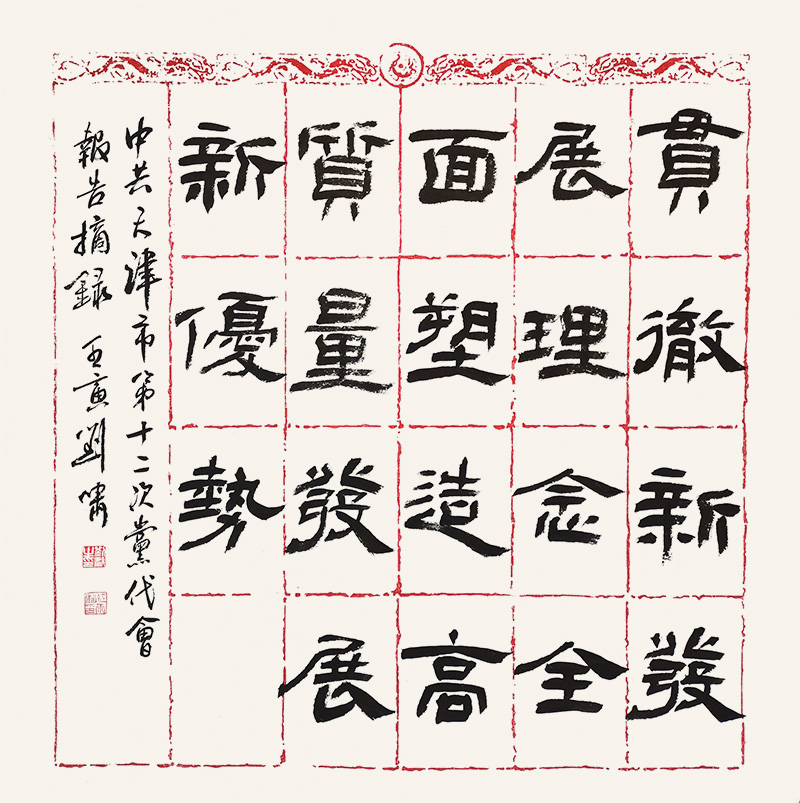 貫徹新發
展理念全
面塑造高
質量發展
新優勢
中共天津市第十二次黨代會
報告摘録 壬寅劉嘯